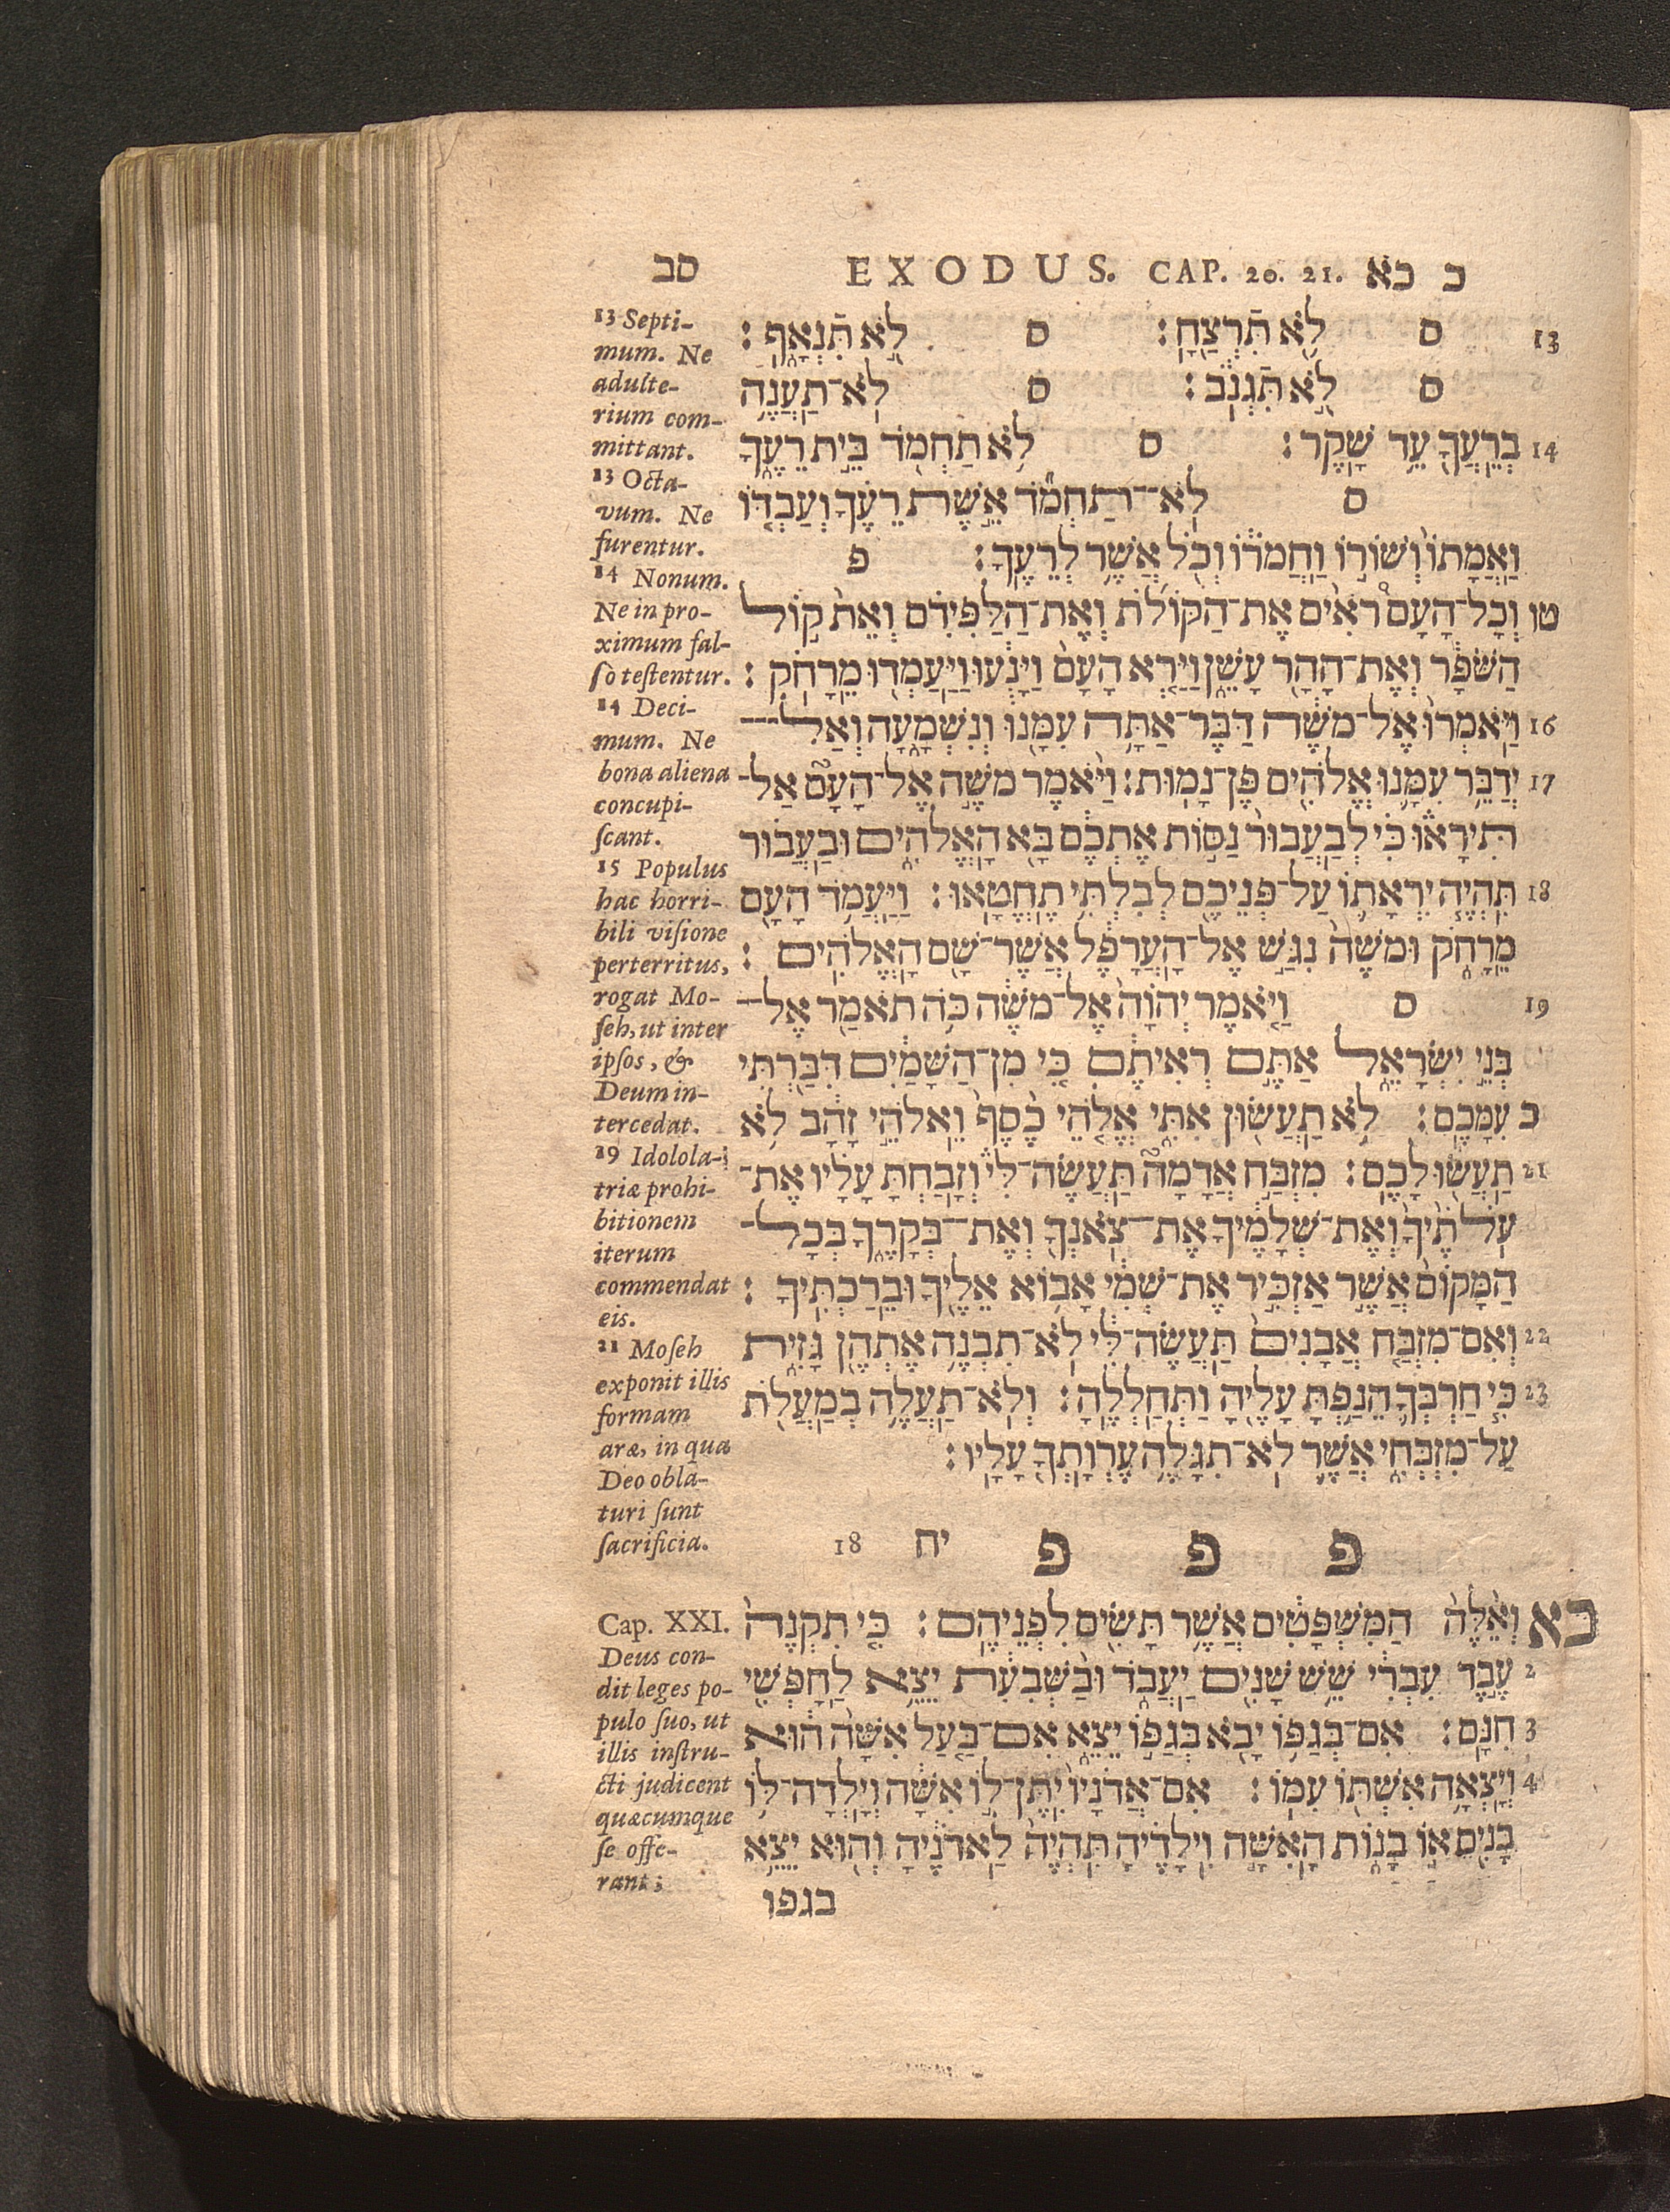 סב EXODUS. CAP. 20. 21. כ כא
13 ס לֹא תִּרְצָח: ס לֹא תִּנְאָף:
ס לֹא תִּגְנֹב: ס לֹא־תַעֲנֶה
14 בְרֵעֲךָ עֵד שָׁקֶר: ס לֹא תַחְמֹד בֵּית רֵעֶךָ
ס לֹא־תַחְמֹד אֵשֶׁת רֵעֶךָ וְעַבְדּוֹ
וַאֲמָתוֹ וְשׁוֹרוֹ וַחֲמֹרוֹ וְכֹל אֲשֶׁר לְרֵעֶךָ: פ
טו וְכָל־הָעָם רֹאִים אֶת־הַקּוֹלֹת וְאֶת־הַלַּפִּידִם וְאֵת קוֹל
הַשֹּׁפָר וְאֶת־הָהָר עָשֵׁן וַיַּרְא הָעָם וַיָּנֻעוּ וַיַּעַמְדוּ מֵרָחֹק:
16 וַיֹּאמְרוּ אֶל־מֹשֶׁה דַּבֶּר־אַתָּה עִמָּנוּ וְנִשְׁמָעָה וְאַל־
17 יְדַבֵּר עִמָּנוּ אֱלֹהִים פֶּן־נָמוּת: וַיֹּאמֶר מֹשֶׁה אֶל־הָעָם אַל־
תִּירָאוּ כִּי לְבַעֲבוּר נַסּוֹת אֶתְכֶם בָּא הָאֱלֹהִים וּבַעֲבוּר
18 תִּהְיֶה יִרְאָתוֹ עַל־פְּנֵיכֶם לְבִלְתִּי תֶחֱטָאוּ: וַיַּעֲמֹד הָעָם
מֵרָחֹק וּמֹשֶׁה נִגַּשׁ אֶל־הָעֲרָפֶל אֲשֶׁר־שָׁם הָאֱלֹהִים:
19 ס וַיֹּאמֶר יְהוָֹה אֶל־מֹשֶׁה כֹּה תֹאמַר אֶל־
בְּנֵי יִשְׂרָאֵל אַתֶּם רְאִיתֶם כִּי מִן־הַשָּׁמַיִם דִּבַּרְתִּי
כ עִמָּכֶם: לֹא תַעֲשׂוּן אִתִּי אֱלֹהֵי כֶסֶף וֵאלֹהֵי זָהָב לֹא
21 תַעֲשׂוּ לָכֶם: מִזְבַּח אֲדָמָה תַּעֲשֶׂה־לִּי וְזָבַחְתָּ עָלָיו אֶת־
עֹלֹתֶיךָ וְאֶת־שְׁלָמֶיךָ אֶת־צֹאנְךָ וְאֶת־בְּקָרֶךָ בְּכָל־
הַמָּקוֹם אֲשֶׁר אַזְכִּיר אֶת־שְׁמִי אָבוֹא אֵלֶיךָ וּבֵרַכְתִּיךָ:
22 וְאִם־מִזְבַּח אֲבָנִים תַּעֲשֶׂה־לִּי לֹא־תִבְנֶה אֶתְהֶן גָּזִית
23 כִּי חַרְבְּךָ הֵנַפְתָּ עָלֶיהָ וַתְּחַלְלֶהָ: וְלֹא־תַעֲלֶה בְמַעֲלֹת
עַל־מִזְבְּחִי אֲשֶׁר לֹא־תִגָּלֶה עֶרְוָתְךָ עָלָיו:
פ פ פ יח 18
כא וְאֵלֶּה הַמִּשְׁפָּטִים אֲשֶׁר תָּשִׂים לִפְנֵיהֶם: כִּי תִקְנֶה
2 עֶבֶד עִבְרִי שֵׁשׁ שָׁנִים יַעֲבֹד וּבַשְּׁבִעִת יֵצֵא לַחָפְשִׁי
3 חִנָּם: אִם־בְּגַפּוֹ יָבֹא בְּגַפּוֹ יֵצֵא אִם־בַּעַל אִשָּׁה הוּא
4 וְיָצְאָה אִשְׁתּוֹ עִמּוֹ: אִם־אֲדֹנָיו יִתֶּן־לוֹ אִשָּׁה וְיָלְדָה־לּוֹ
בָנִים אוֹ בָנוֹת הָאִשָּׁה וִילָדֶיהָ תִּהְיֶה לַאדֹנֶיהָ וְהוּא יֵצֵא
בגפו
13 Septi-
mum. Ne
adulte-
rium com-
mittant.
13 Octa-
vum. Ne
furentur.
14 Nonum.
Ne in pro-
ximum fal-
sò testentur.
14 Deci-
mum. Ne
bona aliena
concupi-
scant.
15 Populus
hac horri-
bili visione
perterritus,
rogat Mo-
seh, ut inter
ipsos, &
Deum in-
tercedat.
19 Idolola-
triæ prohi-
bitionem
iterum
commendat
eis.
21 Moseh
exponit illis
formam
aræ, in qua
Deo obla-
turi sunt
sacrificia.
Cap. XXI.
Deus con-
dit leges po-
pulo suo, ut
illis instru-
cti judicent
quæcumque
se offe-
rant;